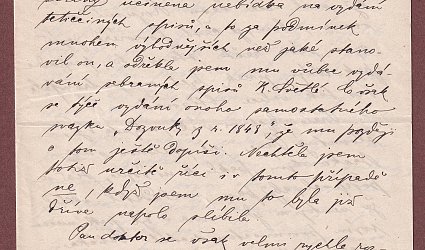 učiněna nabídka na vydání
tetiččiných spisů, a to za podmínek
mnohem výhodnějších než jaké stano-
vil on, a odřekla jsem mu vůbec vydá-
vání sebraných spisů K. Světlé. Co však
se týče vydání onoho samostatného
svazku „Dozvuky z r. 1848", že mu později
o tom ještě dopíši. Nechtěla jsem
totiž určitě říci i v tomto případě
ne, když jsem mu to byla již
dříve napolo slíbila.
Pan doktor se však velmi rychle roz-